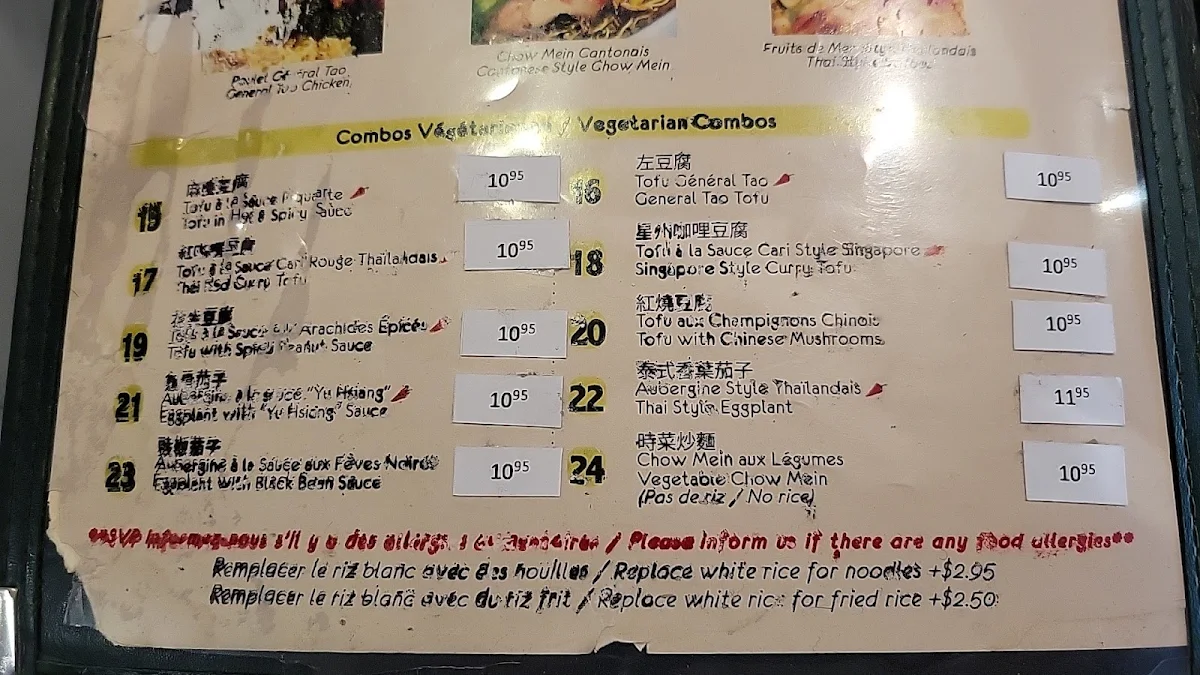 Poulet Général Tao
General Tao Chicken
Chow Mein Cantonais
Cantonese Style Chow Mein
Fruits de Mer Style Thaïlandais
Thai Style
Combos Végétariens / Vegetarian Combos
15
麻婆豆腐
Tofu à la Sauce Piquante
Tofu in Hot & Spicy Sauce
10⁹⁵
16
左豆腐
Tofu Général Tao
General Tao Tofu
10⁹⁵
17
Tofu à la Sauce Cari Rouge Thaïlandais
Thai Red Curry Tofu
10⁹⁵
18
星州咖哩豆腐
Tofu à la Sauce Cari Style Singapore
Singapore Style Curry Tofu
10⁹⁵
19
花生豆腐
Tofu à la Sauce aux Arachides Épicés
Tofu with Spicy Peanut Sauce
10⁹⁵
20
紅燒豆腐
Tofu aux Champignons Chinois
Tofu with Chinese Mushrooms
10⁹⁵
21
魚香茄子
Aubergine à la sauce "Yu Hsiang"
Eggplant with "Yu Hsiang" Sauce
10⁹⁵
22
泰式香葉茄子
Aubergine Style Thaïlandais
Thai Style Eggplant
11⁹⁵
23
豉椒茄子
Aubergine à la Sauce aux Fèves Noires
Eggplant with Black Bean Sauce
10⁹⁵
24
時菜炒麵
Chow Mein aux Légumes
Vegetable Chow Mein
(Pas de riz / No rice)
10⁹⁵
**SVP Informez-nous s'il y a des allergies alimentaires / Please Inform us if there are any food allergies**
Remplacer le riz blanc avec des nouilles / Replace white rice for noodles +$2.95
Remplacer le riz blanc avec du riz frit / Replace white rice for fried rice +$2.50